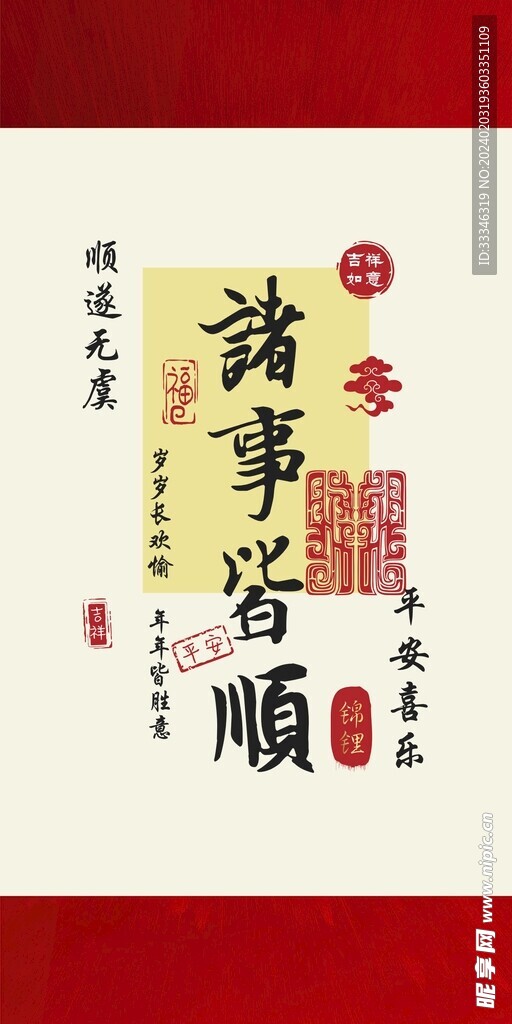 諸事皆順
顺遂无虞
岁岁长欢愉
年年皆胜意
平安喜乐
吉祥
如意
福
吉祥
平安
锦锂
33346319 NO:20240203193603351109
昵享网 www.nipic.cn